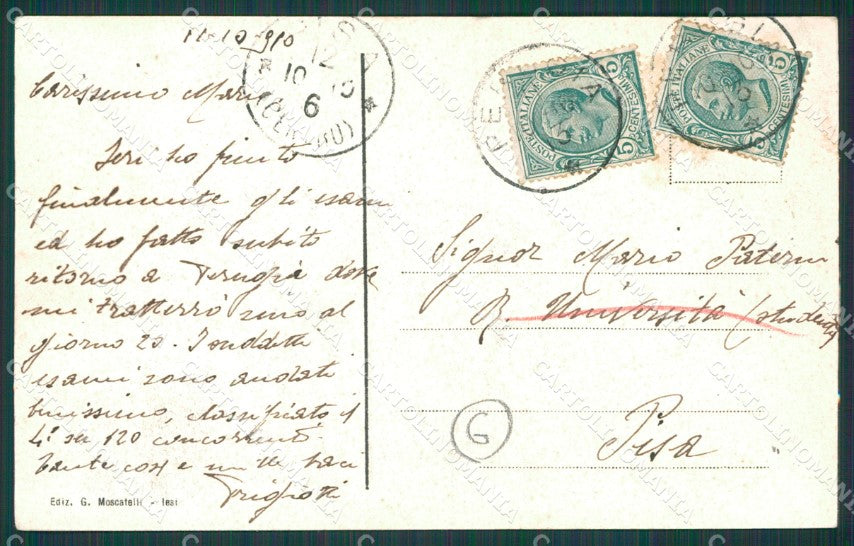 11-10-910
Carissimo Mario
Ieri ho finito
finalmente gli esami
ed ho fatto subito
ritorno a Perugia dove
mi tratterrò sino al
giorno 20. I suddetti
esami sono andati
benissimo, classificato il
4º su 120 concorrenti.
Tante cose e un baci
Ediz. G. Moscatelli - Iesi
12
10 10
6
POSTE ITALIANE
5 CENTESIMI 5
POSTE ITALIANE
5 CENTESIMI 5
Signor Mario Paterni
R. Università (studente)
Pisa
G
CARTOLINOMANIA